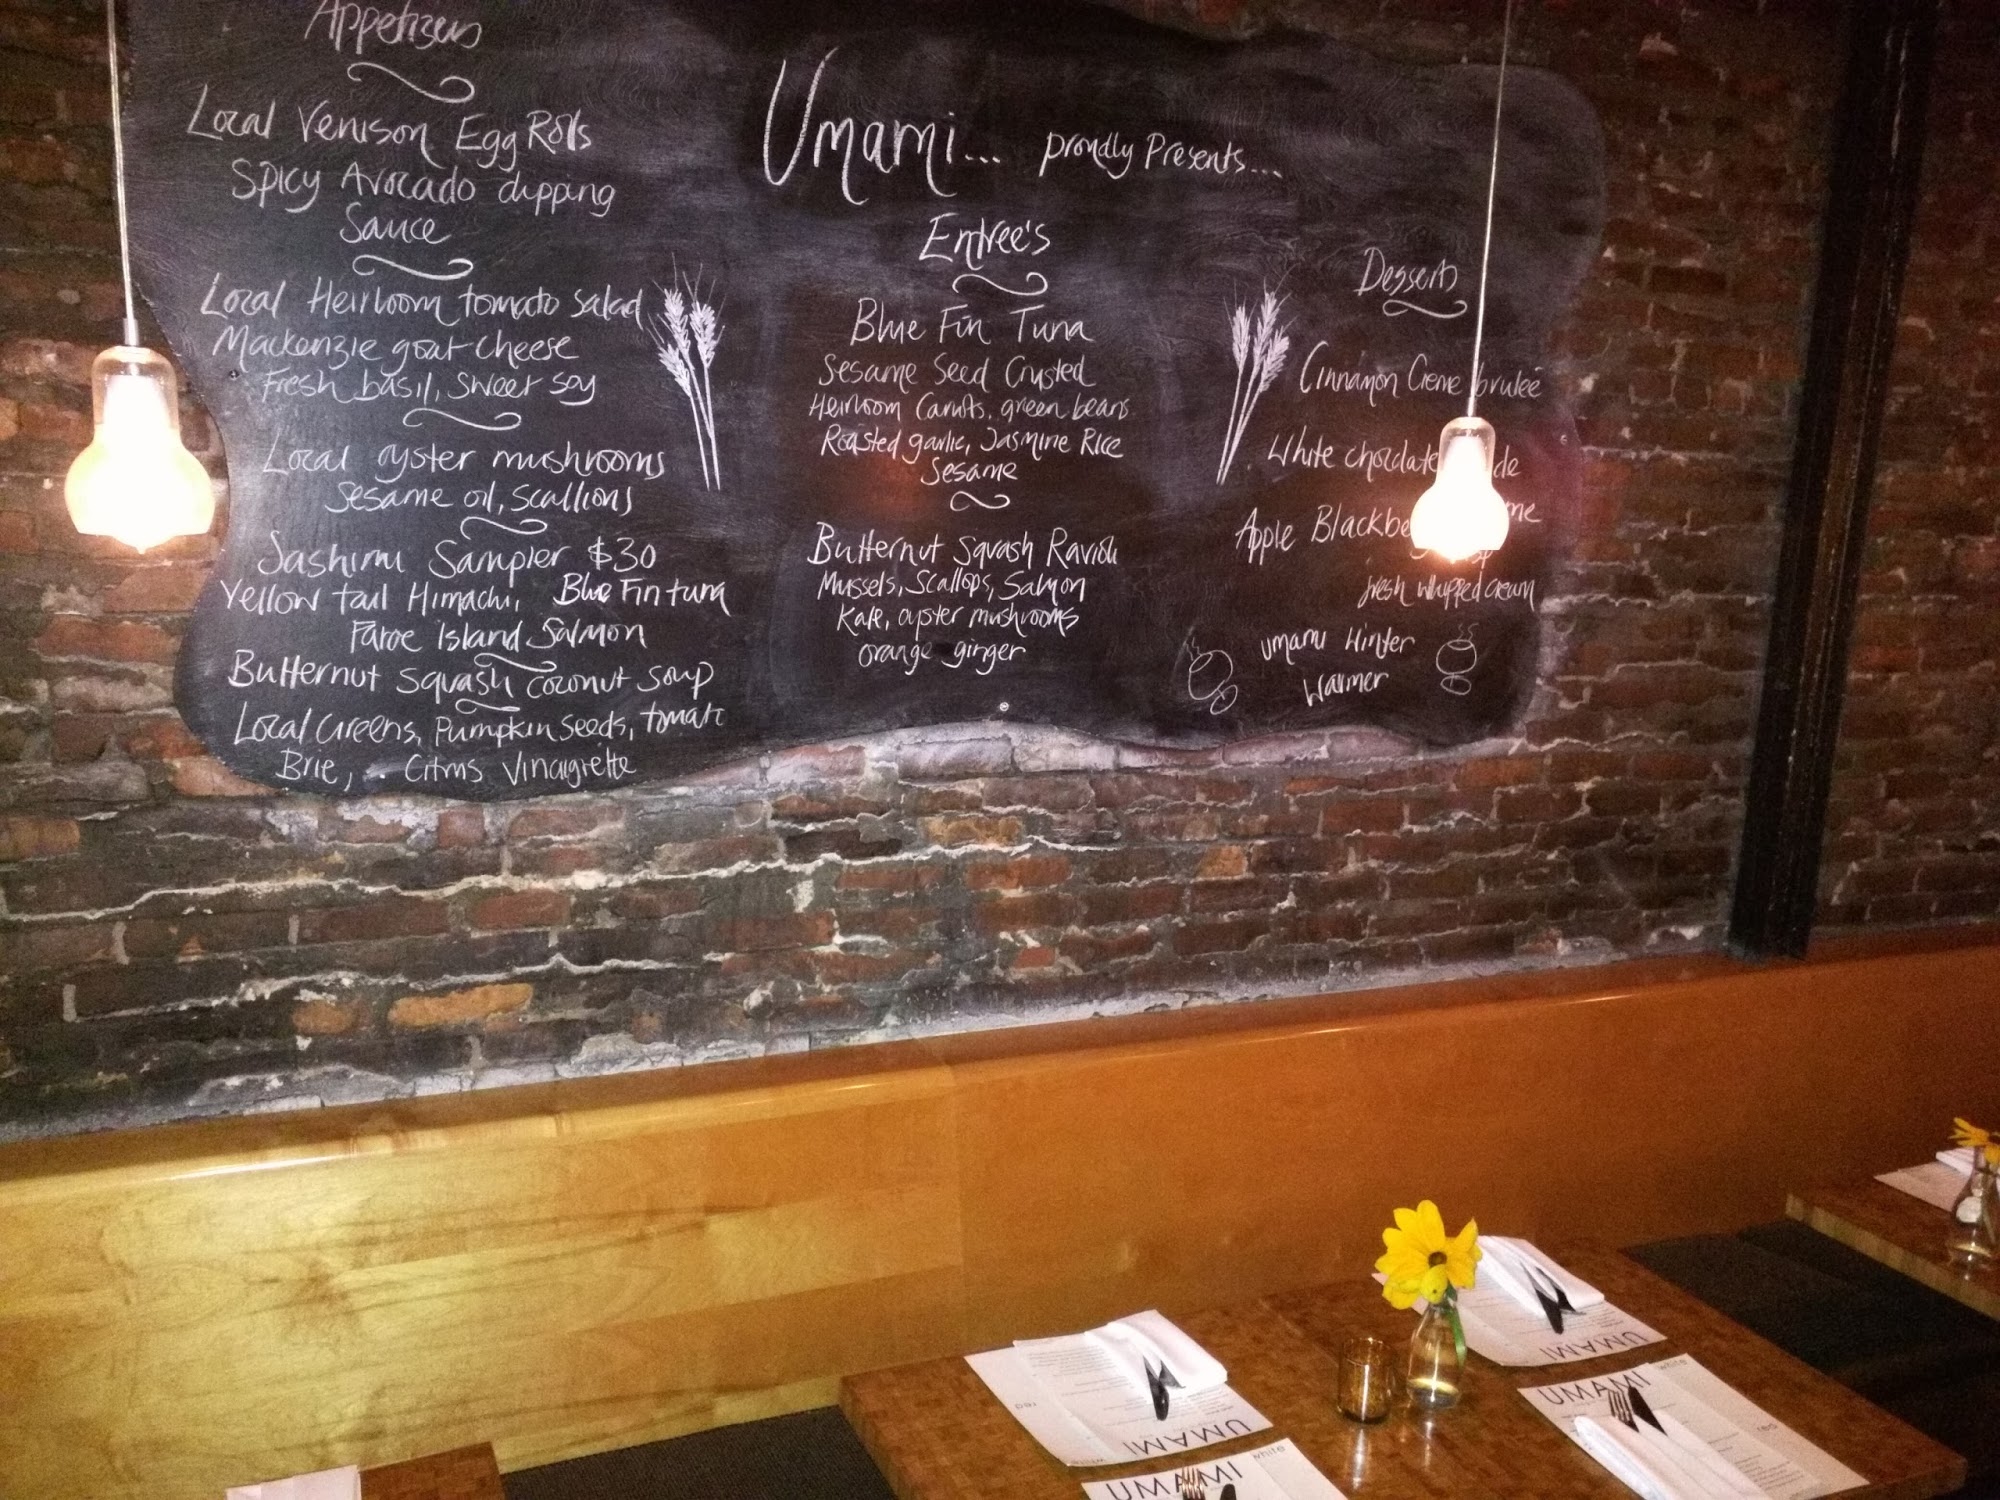 Appetizers
Local Venison Egg Rolls
Spicy Avocado dipping
Sauce
Local Heirloom tomato salad
Mackenzie goat cheese
Fresh basil, sweet soy
Local oyster mushrooms
Sesame oil, scallions
Sashimi Sampler $30
Yellow tail Himachi, Blue Fin tuna
Faroe Island Salmon
Butternut Squash coconut soup
Local Greens, Pumpkin seeds, tomato
Brie, Citrus Vinaigrette
Umami... proudly Presents...
Entree's
Blue Fin Tuna
Sesame Seed Crusted
Heirloom Carrots, green beans
Roasted garlic, Jasmine Rice
Sesame
Butternut Squash Ravioli
Mussels, Scallops, Salmon
Kale, oyster mushrooms
orange ginger
Desserts
Cinnamon Creme brulee
White chocolate
Apple
fresh whipped cream
umami Winter
Warmer
UMAMI
red
white
UMAMI
white
UMAMI
UMAMI
white
red